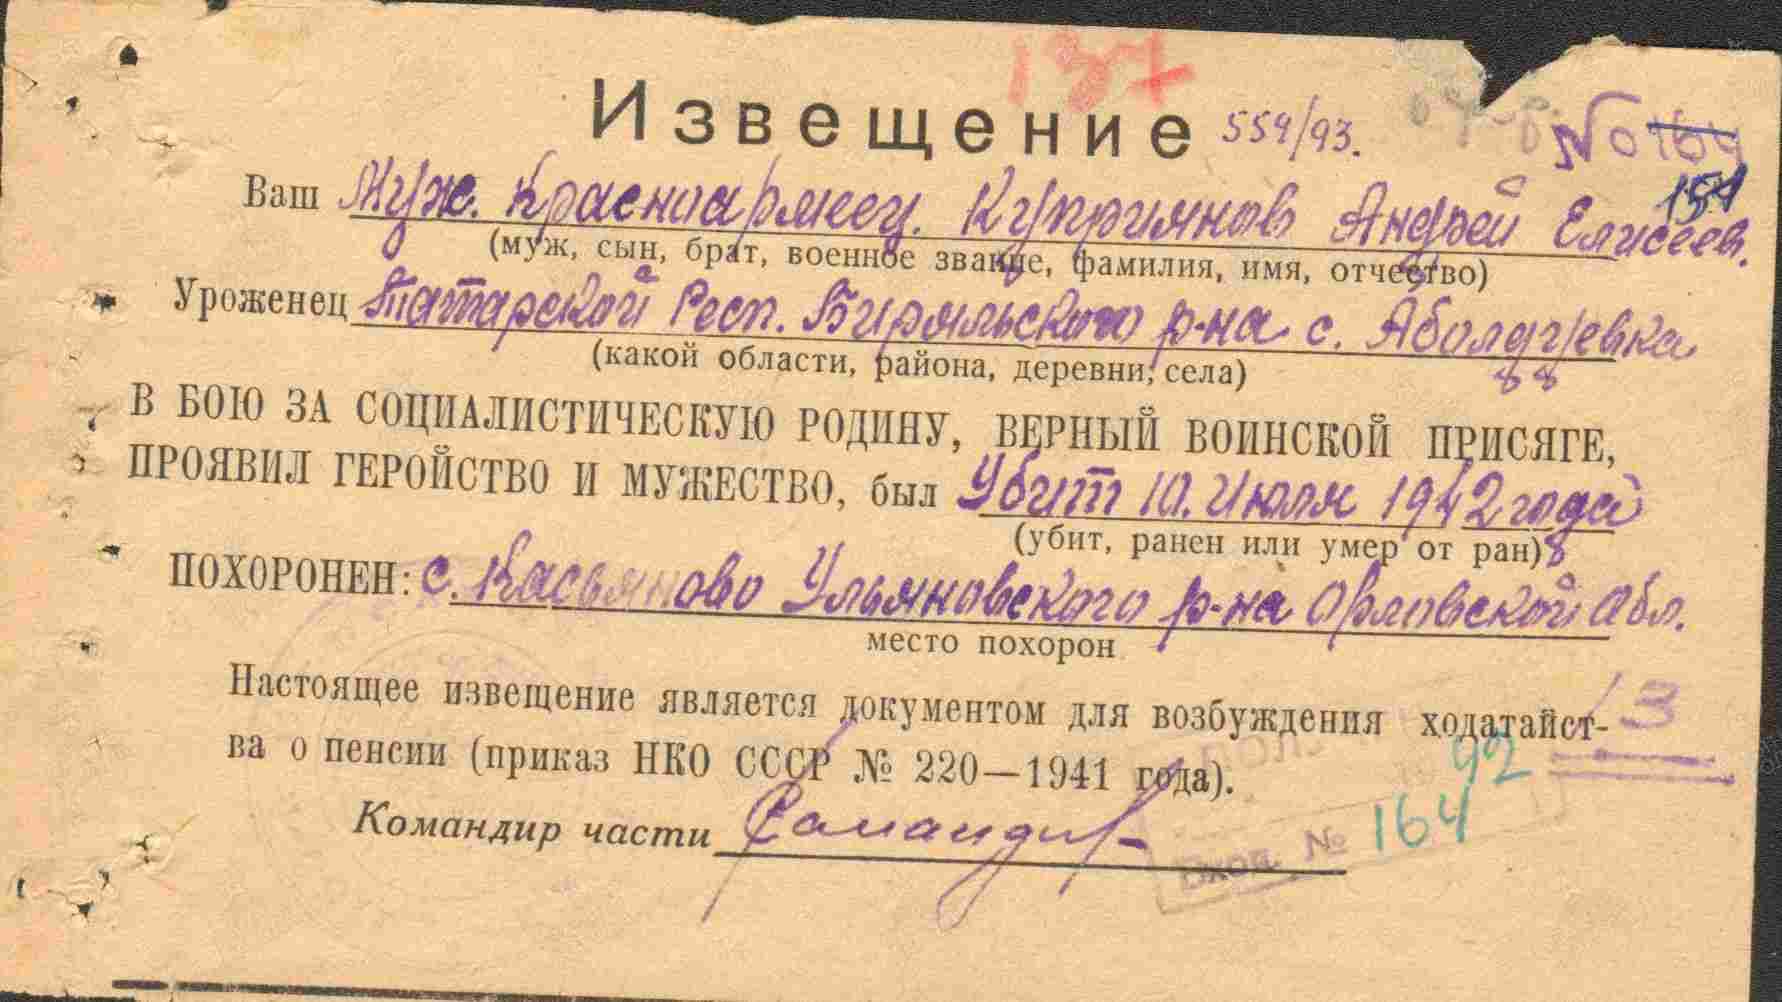 137
Извещение 559/93.
№ 164
154
Ваш Муж. Красноармеец. Куприянов Андрей Елисеев.
(муж, сын, брат, военное звание, фамилия, имя, отчество)
Уроженец Татарской Респ. Бирюльского р-на с. Аболдуевка
(какой области, района, деревни, села)
В БОЮ ЗА СОЦИАЛИСТИЧЕСКУЮ РОДИНУ, ВЕРНЫЙ ВОИНСКОЙ ПРИСЯГЕ,
ПРОЯВИЛ ГЕРОЙСТВО И МУЖЕСТВО, был Убит 10. Июля 1942 года
(убит, ранен или умер от ран)
ПОХОРОНЕН: с. Касьяново Ульяновского р-на Орловской Обл.
место похорон
Настоящее извещение является документом для возбуждения ходатайст-
ва о пенсии (приказ НКО СССР № 220—1941 года).
13
92
Командир части
Вход. № 164